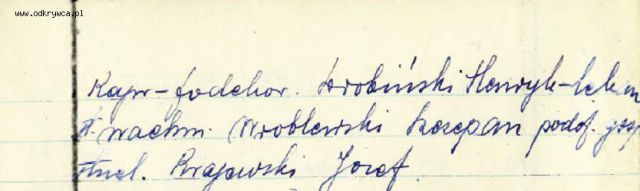 www.odkrywca.pl
Kapr-podchor. Drobiński Henryk-lek
st. wachm. Wroblewski Szczepan podof.
strzel. Krajewski Jozef.